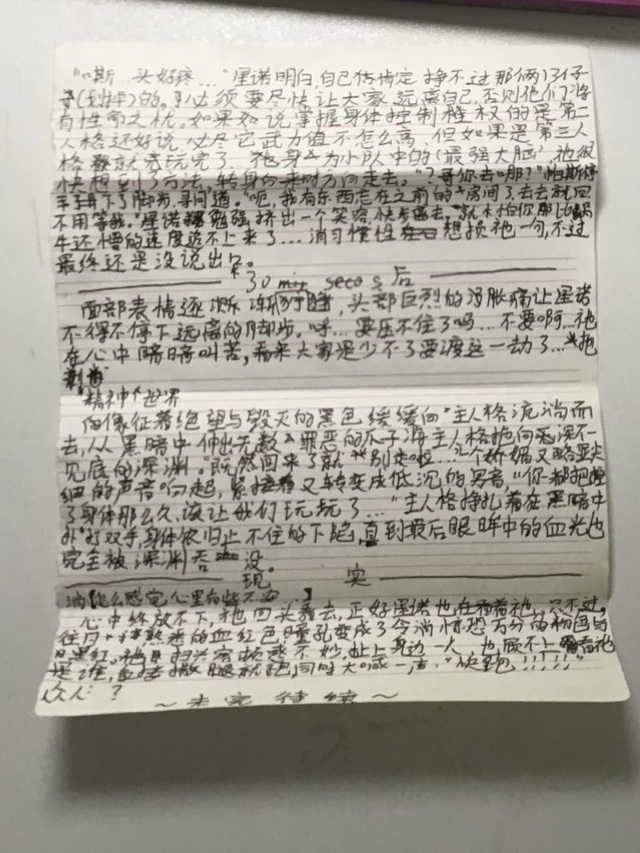 “嘶…头好疼…”星诺明白,自己估肯定 挣不过那俩
(划掉)的。必须要尽快让大家远离自己,否则他们将
有性命之忧。如果如说掌握身体控制权权的是第二
人格还好说 必尽它武力值不怎么高、但如果是第三人
格就会玩完了、祂身为小队中的(最强大脑)祂很
快想到了方法,转身向来时方向走去。“?哥你去哪?”
下了脚步,寻问道。“呃,我有东西走在之前的房间了、去去就回
不用等我。”星诺勉强挤出一个笑容,快步离去。
牛还慢的速度追不上来了…消习惯性 想损祂一句,不过
最终还是没说出口。
30 min 后
面部表情逐渐 头部巨烈的 胀痛让星诺
不得不停下远离的脚步。呼…要压不住了吗…不要啊…祂
在心中暗暗叫苦,看来大家是少不了要渡这一劫了…
精神世界
向像征着绝望与毁灭的黑色缓缓向“主人格流淌而
去,从黑暗中伸出无数罪恶的爪子 主人格拖向 不
见底的深渊。“既然回来了就别走啦…”一个娇媚又略显尖
细的声音响起,紧接着又转变成低沉的男音“你 都把握
了身体那么久、该让我们玩玩了…”主人格挣扎着在黑暗中
双手,身体依旧止不住的下陷,直到最后眼眸中的血光也
完全被深渊吞 没。
现 实
消[怎么感觉心里有些不安…]
心中终放不下,祂回头看去,正好星诺也在看着祂,只不过,
往日 熟悉的血红色瞳孔变成了令消惊恐万分的粉色与
黑红。祂 顿感不妙,扯上身边一人,也顾不上看
是谁,直接撒腿就跑,同时大喊一声:“快跑!!!!!”
众人:?
~未完待续~